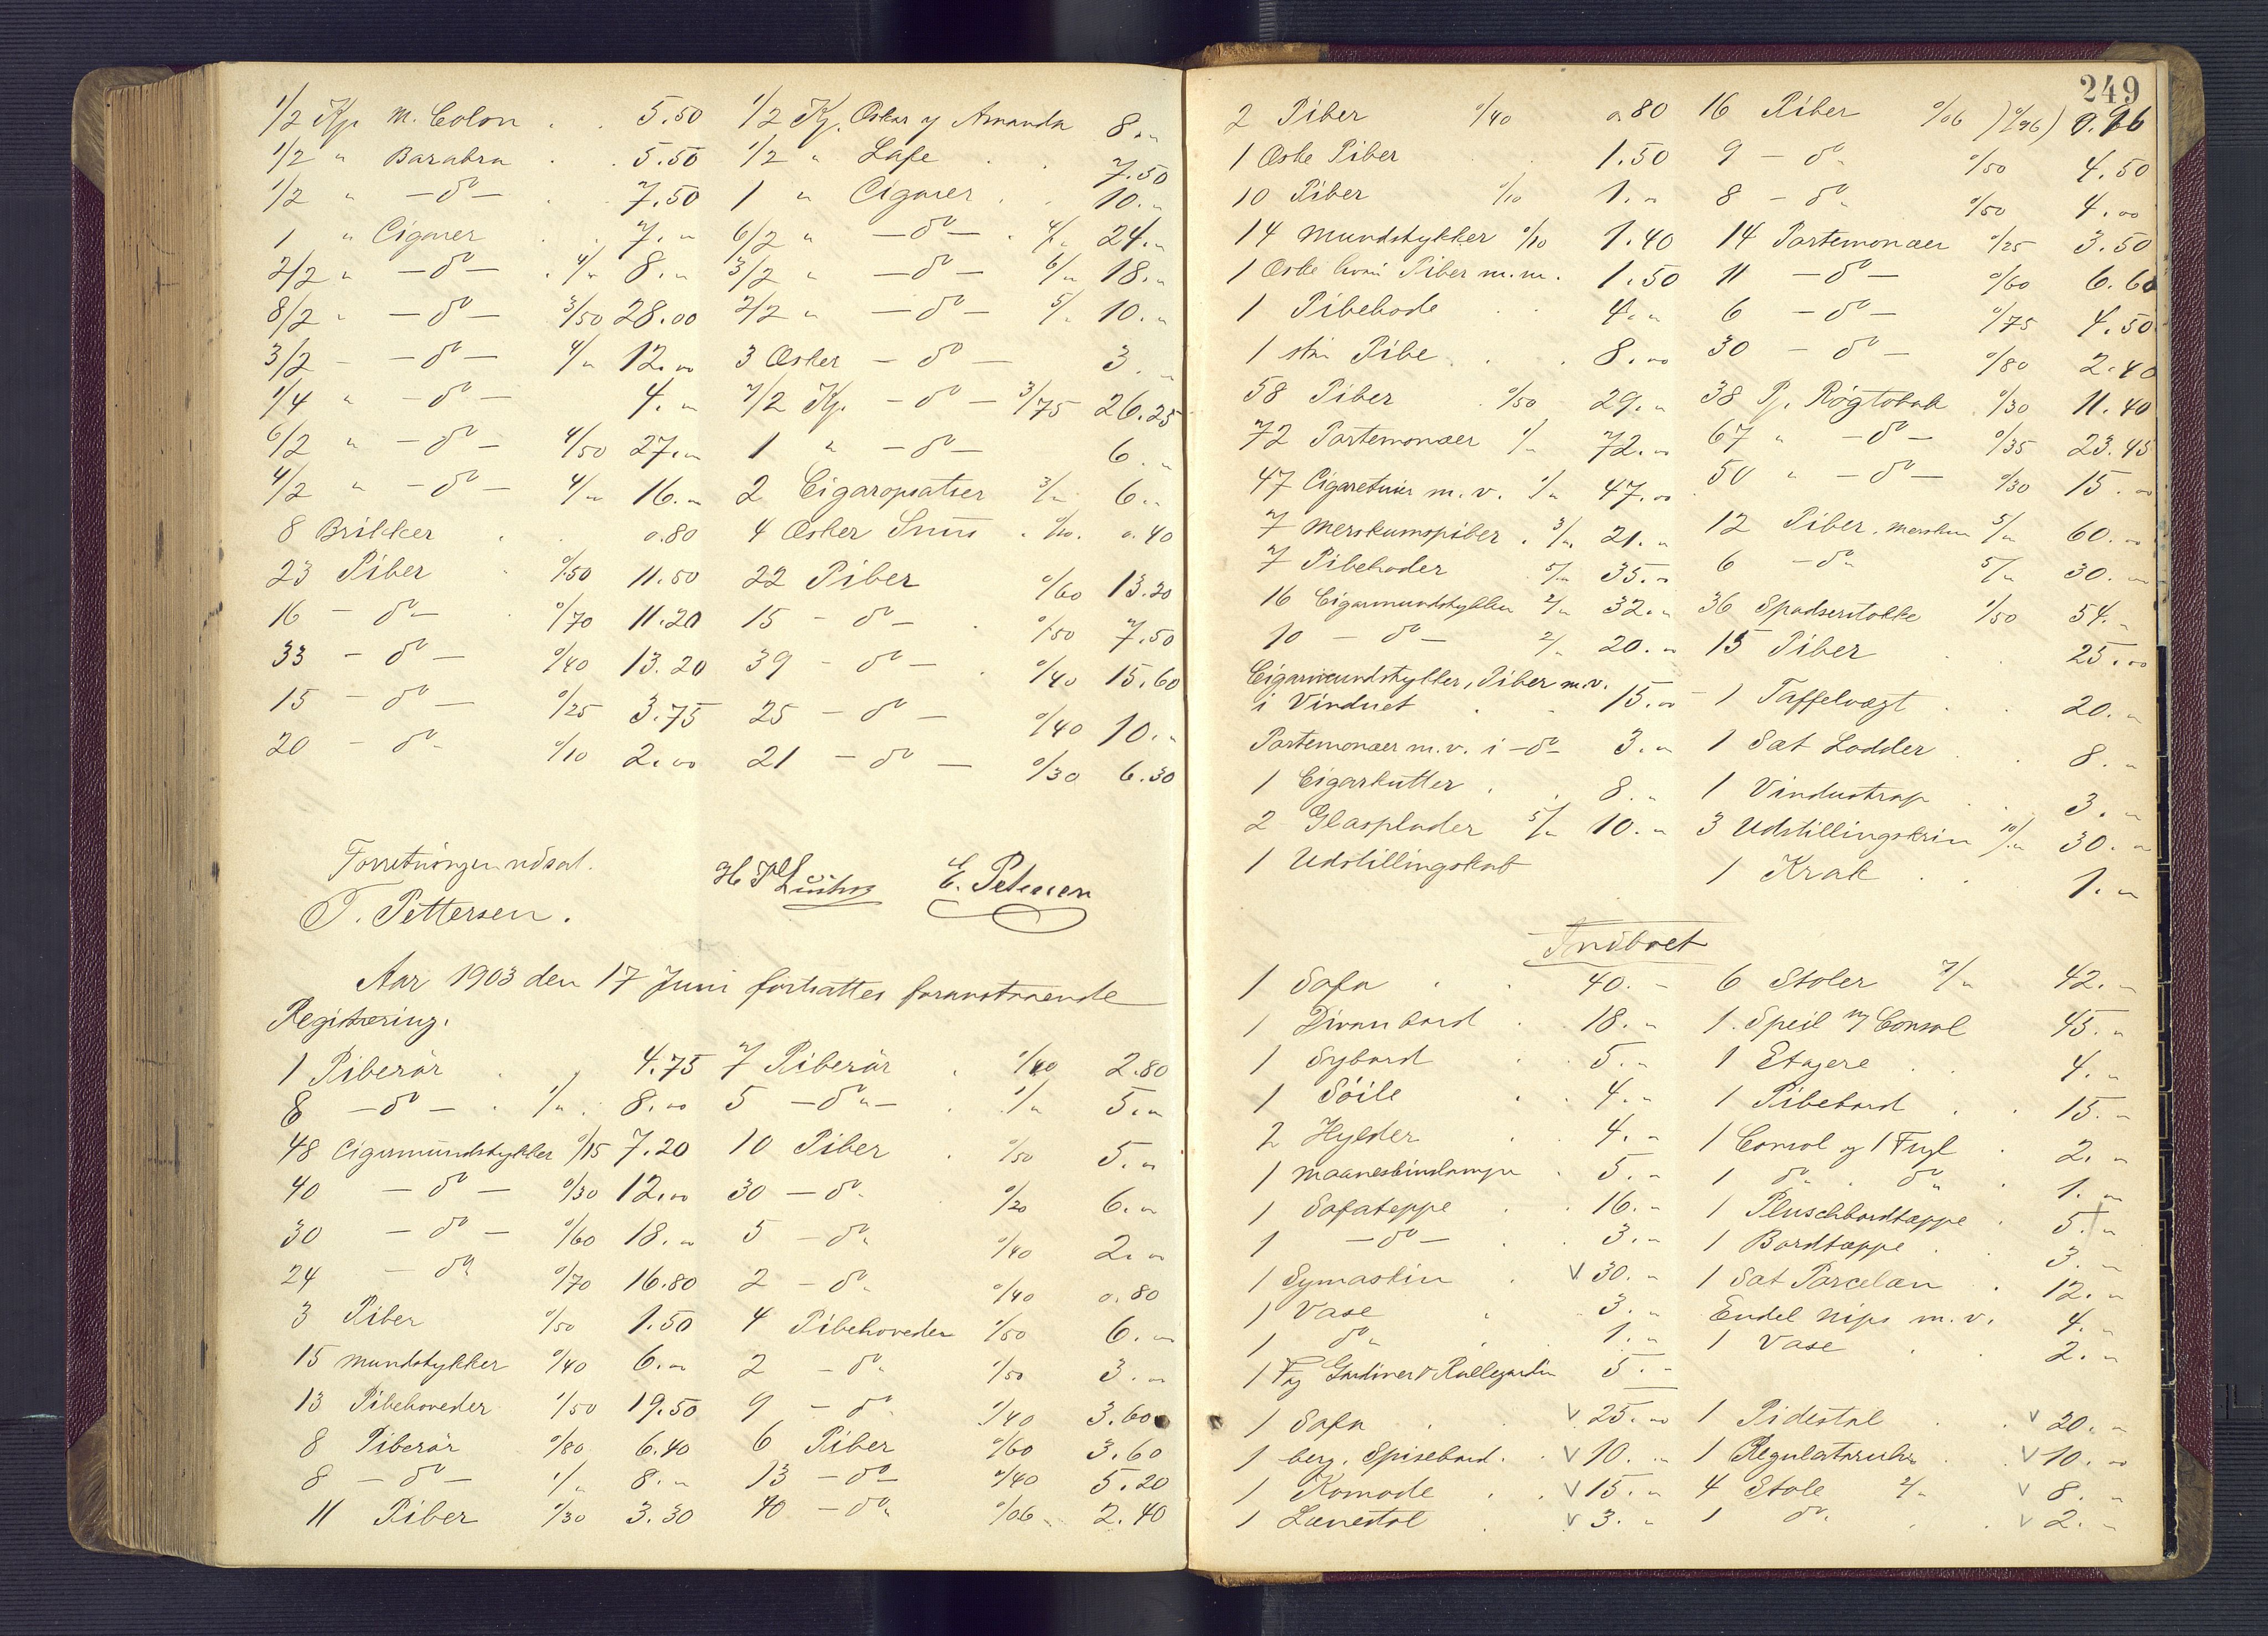 1/2 Kp. M. Colon . . 5.50 1/2 Kp. Oskar og Amanda 8.„
1/2 „ Barabra . . 5.50 1/2 „ Lafe . . 7.50
1/2 „ – do – . 7.50 1 „ Cigarer . . 10.„
1 „ Cigarer . . 7.„ 6/2 „ – do – . 4/„ 24.„
2/2 „ – do – . 4/„ 8.„ 3/2 „ – do – 6/„ 18.„
8/2 „ – do – 3/50 28.00 2/2 „ – do – 5/„ 10.„
3/2 – – do – 4/„ 12.00 3 Æsker – do – 3.„
1/4 „ – do – 4.„ 7/2 Kp. – do – 3/75 26.25
6/2 „ – do – 4/50 27.„ 1 „ – do – 6.„
4/2 „ – do – 4/„ 16.„ 2 Cigaropsatser 3/„ 6.„
8 Brikker . . 0.80 4 Æsker Snus . 0/10. 0.40
23 Piber . 0/50 11.50 22 Piber 0/60 13.20
16 – do – . 0/70 11.20 15 – do – . 0/50 7.50
33 – do – 0/40 13.20 39 – do – . 0/40 15.60
15 – do – 0/25 3.75 25 – do – 0/40 10.„
20 – do „ 0/10 2.00 21 – do – 0/30 6.30
Forretningen udsat.
T. Pettersen. E. Petersen
Aar 1903 den 17 Juni fortsattes foranstaaende
Registrering.
1 Piberör . . 4.75 7 Piberör . 0/40 2.80
8 – do – . 1/„ . 8.00 5 – do „ – . 1/„ 5.„
48 Cigarmundstykker 0/15 7.20 10 Piber . 0/50 5.„
40 – do – 0/30 12.00 30 – do „ 0/20 6.„
30 – do – 0/60 18.„ 5 – do „ 0/40 2.„
24 – do „ 0/70 16.80 2 – do „ 0/40 0.80
3 Piber 0/50 1.50 4 Pibehoveder 1/50 6.„
15 Mundstykker 0/40 6.„ 2 – do „ 1/50 3.„
13 Pibehoveder 1/50 19.50 9 – do „ 0/40 3.60
8 Piberör 0/80 6.40 6 Piber 0/60 3.60
8 – do – 1/„ 8.„ 13 – do – 0/40 5.20
11 Piber 0/30 3.30 40 – do „ 0/06 „ 2.40
249
2 Piber 0/40 0.80 16 Piber 0/06 )0/96) 0.96
1 Æske Piber . . 1.50 9 – do „ 0/50 4.50
10 Piber 0/10 1.„ 8 – do „ 0/50 4.00
14 Mundstykker 0/10 1.40 14 Portemonæer 0/25 3.50
1 Æske Piber m.m. 1.50 11 – do – 0/60 6.60
1 Pibehode . . 4.„ 6 – do – 0/75 4.50
1 stor Pibe . . 8.00 30 – do – 0/80 2.40
58 Piber . 0/50 29.„ 38 Pj. Røgtobak . 0/30 11.40
72 Portemonæer 1/„ 72.00 67 „ – do – 0/35 23.45
47 Cigaretuier m.v. 1/„ 47.00 50 „ – do – 0/30 15.00
7 Merskumspiber . 3/„ 21.„ 12 Piber, merskum 5/„ 60.00
7 Pibehoder 5/„ 35.00 6 – do „ 5/„ 30.„
16 Cigarmundstykker 2/„ 32.„ 36 Spadserstokke 1/50 54.„
10 – do – 2/„ 20.„ 15 Piber . . 25.00
Cigarmundstykker, Piber m.v.
i Vinduet . . 15.00 – 1 Taffelvægt . . 20.„
Portemonæer m.v. i – do – 3.„ 1 Sæt Lodder . . 8.„
1 Cigarkutter . . 8.„ 1 Vindustrap . . 3.„
2 Glasplader 5/„ 10.„ 3 Udstillingskrin 10/„ 30.„
1 Udstillingskab 1 Krak . . 1.„
Indboet
1 Sofa . . 40.– 6 Stoler 7/„ 42.„
1 Divanbord . 18.„ 1 Speil m/ Consol 45.„
1 Sybord . . 5.„ 1 Etagere . . 4.„
1 Söile . . 4.„ 1 Pibebord . . 15.„
2 Hylder . . 4.„ 1 Consol og 1 Fugl . 2.„
1 Maaneskinslampe . 5.„ 1 do „ . do „ . 1.„
1 Sofateppe . . 16.„ 1 Pluschbordtæppe . 5.„
1 – do – . . 3.„ 1 Bordtæppe . . 3.„
1 Symaskin . V 30.„ 1 Sæt Porcelæn . 12.„
1 Vase . . 3.„ Endel Nips m.v. 4.„
1 do „ . 1.„ 1 Vase . . 2.„
1 Fag Gardiner & Rullegardin 5.–
1 Sofa . . V 25.00 1 Pidestal . . V 20.„
1 berg. Spisebord . . V 10.„ 1 Regulatoruhr . . V 10.00
1 Komode . . V 15.„ 4 Stole 2/„ V 8.„
1 Lænestol . V 3.„ 1 do „ . . V 2.„